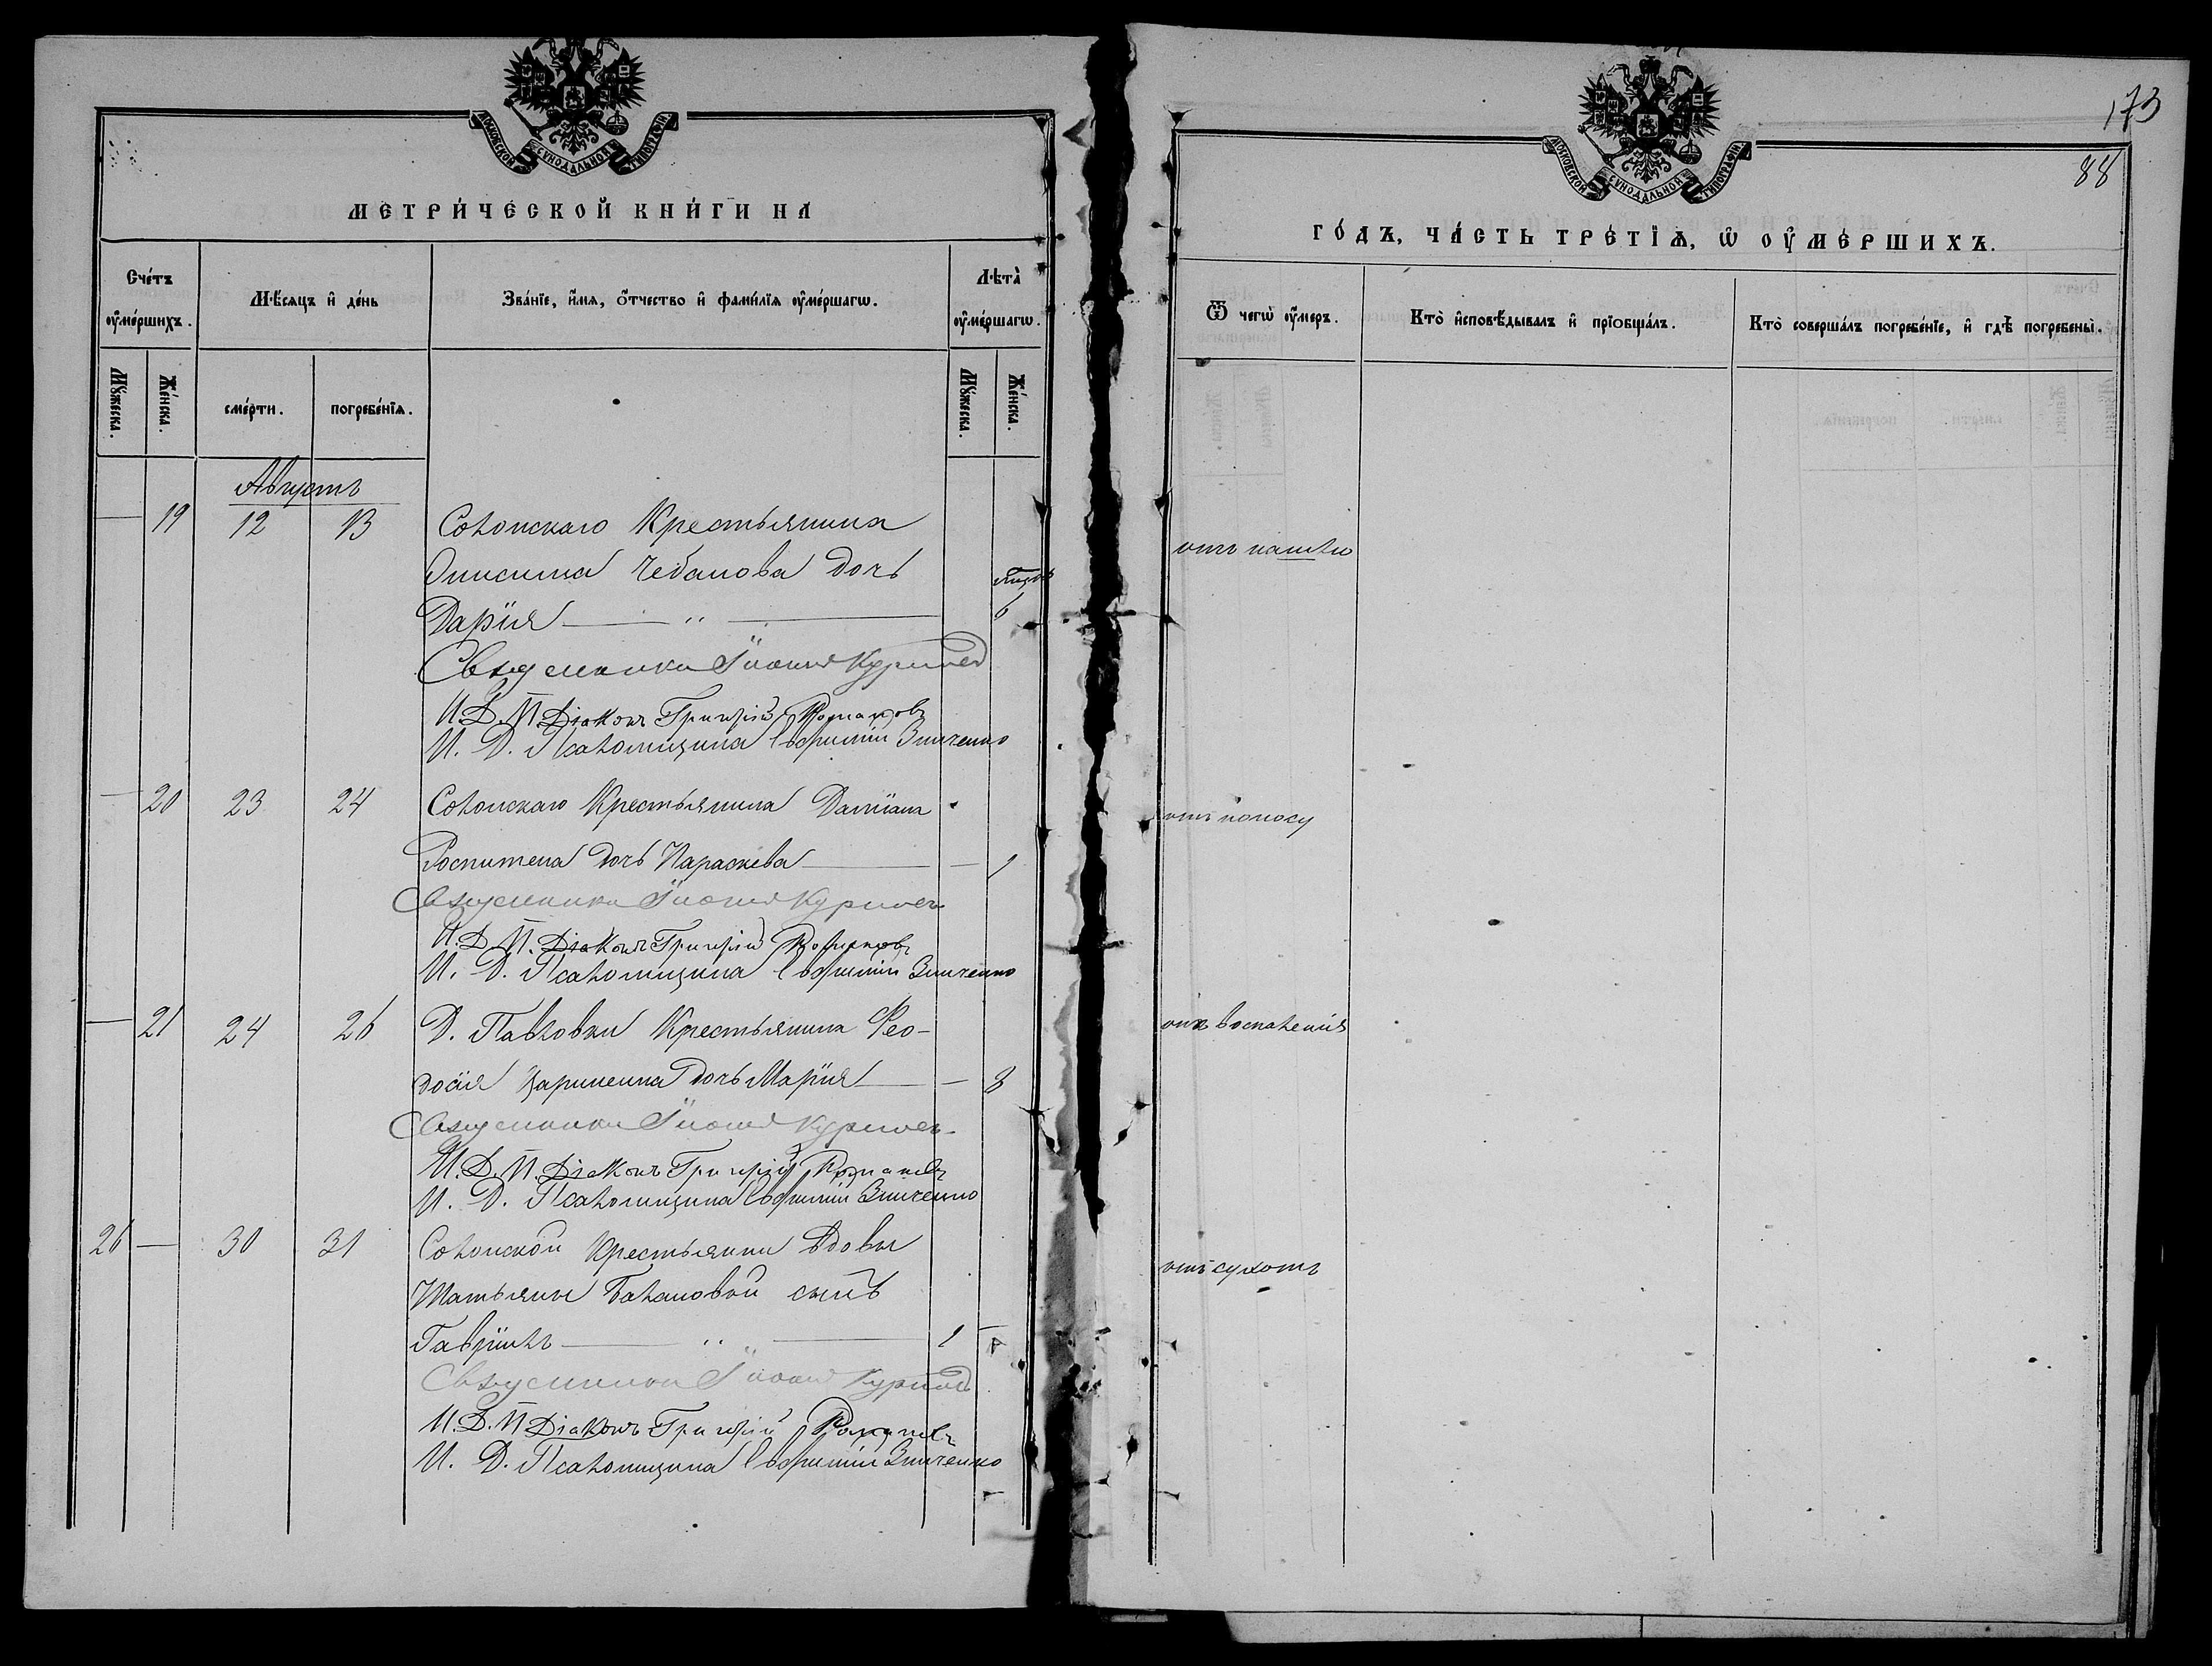 МОСКОВСКОЙ СѴНОДАЛЬНОЙ ТИПОГРАФІИ
МЕТРИ́ЧЕСКОЙ КНИ́ГИ НА
Сче́тъ ᲂу҆ме́ршихъ.
Мѣ́сяцъ и҆ де́нь
Зва́нїе, и҆́мя, ѻ҆́тчество и҆ фами́лїя ᲂу҆ме́ршагѡ.
Лѣта̀ ᲂу҆ме́ршагѡ.
Мꙋ́жеска.
Же́нска.
сме́рти.
погребе́нїя.
Мꙋ́жеска.
Же́нска.
Августъ
— 19 12 13 Солонскаго Крестьянина
Онисима Чебанова дочь
Дарія — " — 6
Священникъ Іоаннъ
И.Д.П. Діаконъ Григорій Романовъ
И. Д. Псаломщика Евфимій Зинченко
— 20 23 24 Солонскаго Крестьянина Даміана
дочь Параскева — — 1
Священникъ Іоаннъ
И.Д.П. Діаконъ Григорій Романовъ
И. Д. Псаломщика Евфимій Зинченко
— 21 24 26 Д. Павловки Крестьянина Ѳео-
досія дочь Марія — — 3
Священникъ Іоаннъ
И.Д.П. Діаконъ Григорій Романовъ
И. Д. Псаломщика Евфимій Зинченко
26 — 30 31 Солонской Крестьянки вдовы
Татьяны Балановой сынъ
Гавріилъ — " — 1 —
Священникъ Іоаннъ
И.Д.П Діаконъ Григорій Романовъ
И. Д. Псаломщика Евфимій Зинченко
173
88
МОСКОВСКОЙ СѴНОДАЛЬНОЙ ТИПОГРАФІИ
ГО́ДЪ, ЧА́СТЬ ТРЕ́ТЇѦ, Ѡ҆ ОУ҆МЕ́РШИХЪ.
Ѿ чегѡ̀ ᲂу҆́меръ.
Кто̀ и҆сповѣ́дывалъ и҆ прїобща́лъ.
Кто̀ соверша́лъ погребе́нїе, и҆ гдѣ̀ погребены̀.
отъ кашлю
отъ поносу
отъ воспаленія
отъ сухотъ